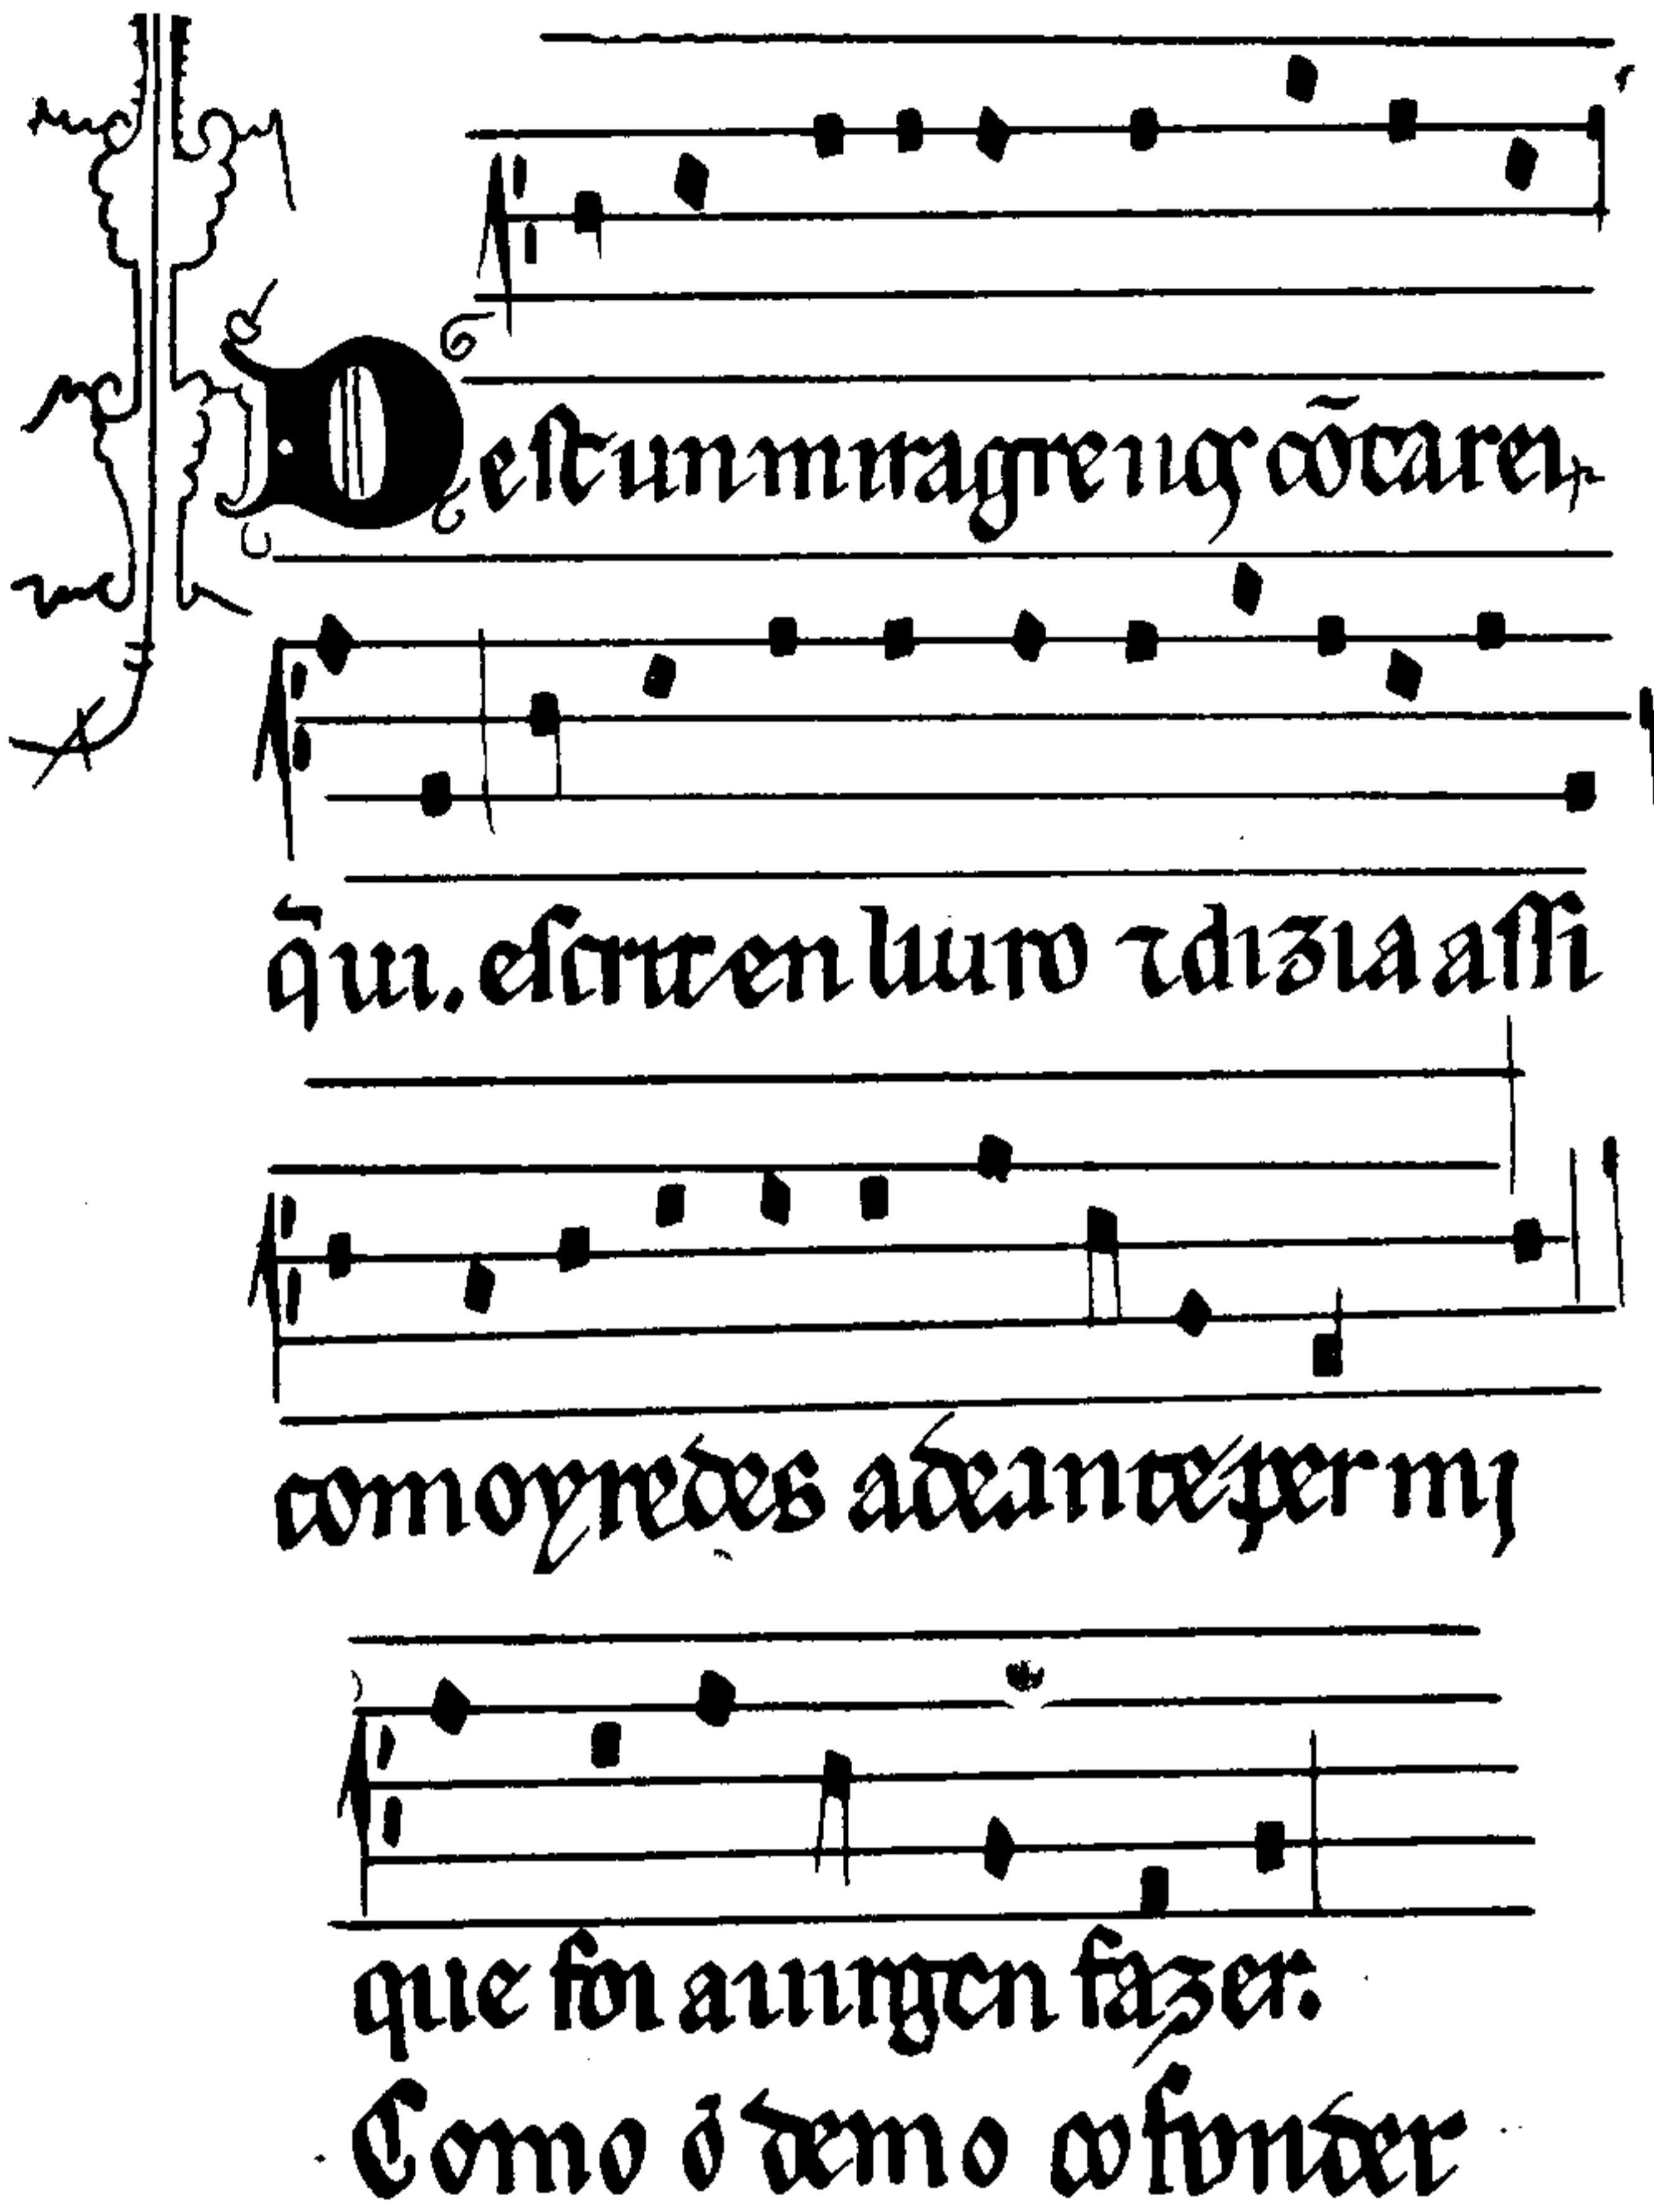 Deſt un miragre uꝯ cõtarei
q̃ ui. eſcrit en liuro ⁊ dizia aſſi
com oyredes adeante per mj
que foi a uirgen fazer.
Como o demo cofonder